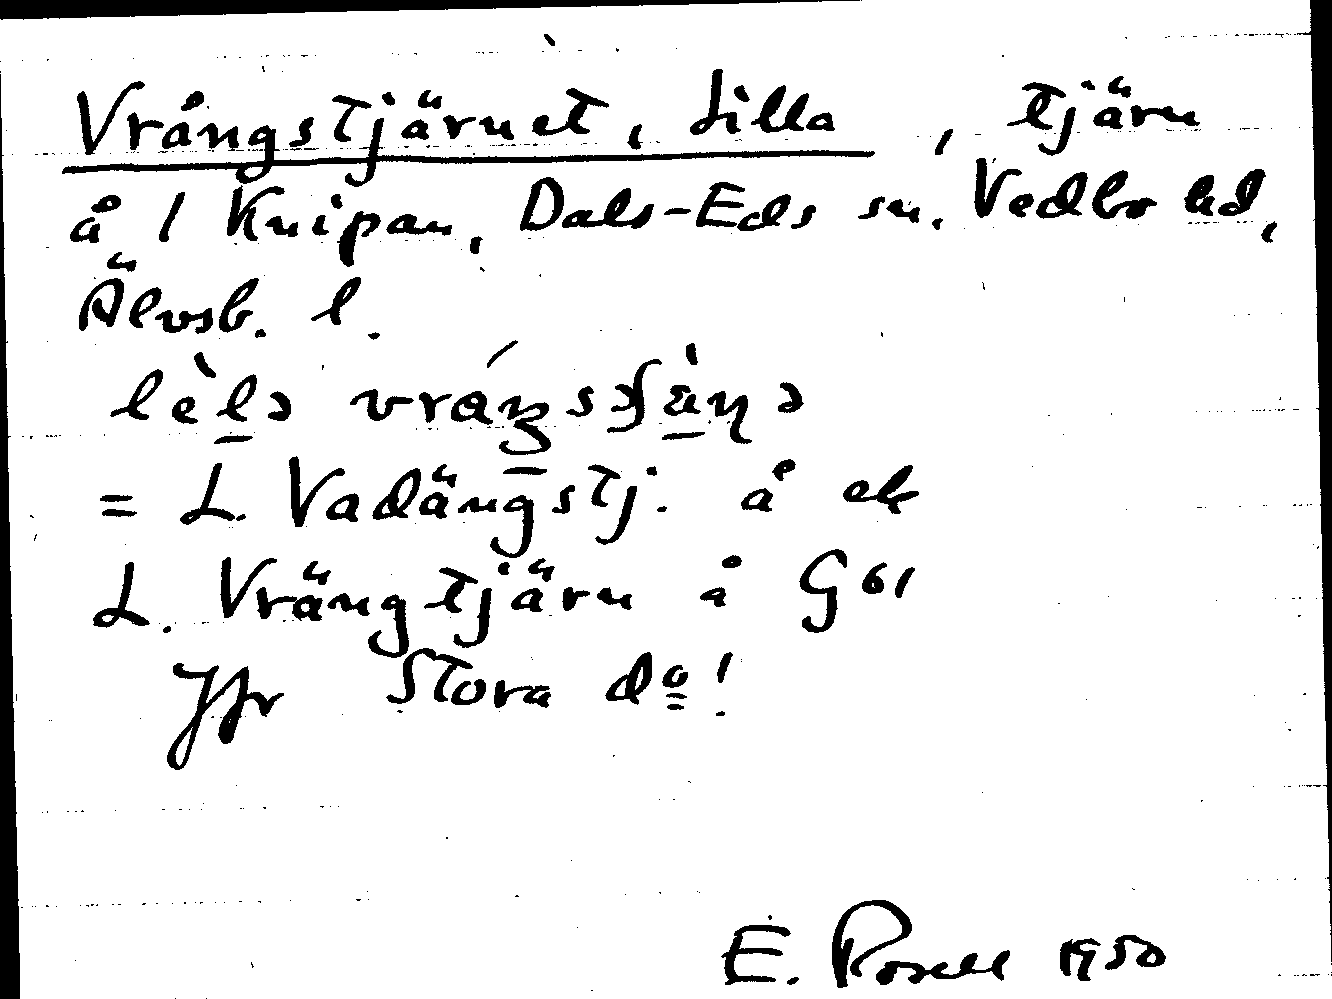 Vrångstjärnet, Lilla, tjärn
å 1 Knipan, Dals-Eds sn. Vedbo hd,
Älvsb. l.
= L. Vadängstj. å ek
L. Vrängtjärn å G61
Jfr Stora dº!
E. Rosell 1950